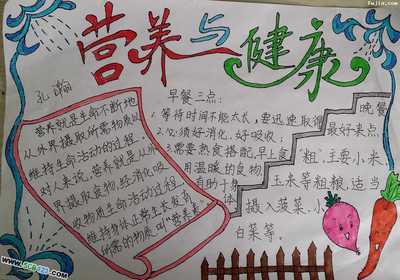 营养与健康
孔瀚
营养就是生命不断地
从外界摄取所需物质以
维持生命活动的过程,
对人来说,营养就是从外
界摄取食物,经消化吸
收物质生命活动过程,
维持身体正常生长发育
所需的物质,叫“营养素”
早餐三点:
1、等待时间不能太长,要迅速取得
2、必须好消化,好吸收;
3、需要热食搭配,早上食
用温暖的食物,
有助于身
体
晚餐
最好来点
“粗”,主要小米,
玉米等粗粮,适当
摄入菠菜,小
白菜等。